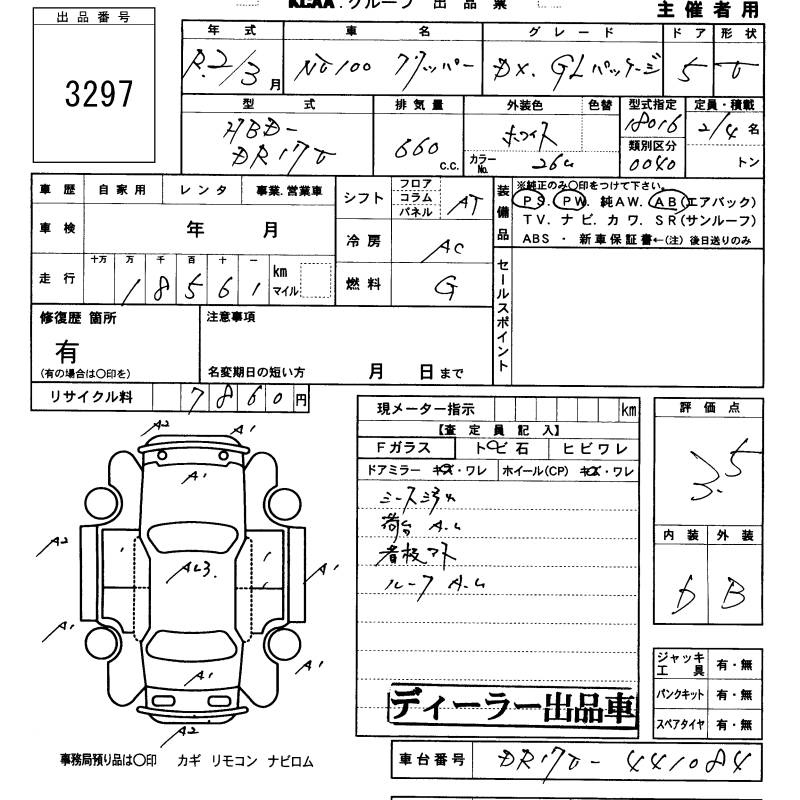 KCAA.グループ 出品票
主催者用
出品番号
3297
年式 車名 グレード ドア 形状
R.2/3月 NT100 クリッパー DX. GLパッケージ 5 V
型式 排気量 外装色 色替 型式指定 定員・積載
HBD-DR17V 660 c.c. ホワイト 18016 2/4名
カラーNo. 26u 類別区分 0040 トン
車歴 自家用 レンタ 事業.営業車
車検 年 月
走行 十万 万 千 百 十 一 km マイル
18561
シフト フロア コラム パネル AT
冷房 AC
燃料 G
装備品
※純正のみ○印をつけて下さい。
PS. PW. 純AW. AB(エアバック)
TV. ナビ. カワ. SR(サンルーフ)
ABS ・ 新車保証書←(注) 後日送りのみ
セールスポイント
修復歴 箇所
有
(有の場合は○印を)
注意事項
名変期日の短い方 月 日まで
リサイクル料 7860円
現メーター指示 km
【査定員記入】
Fガラス トビ石 ヒビワレ
ドアミラー キズ・ワレ ホイール(CP) キズ・ワレ
荷台 A.u
看板アト
ルーフ A.u
ディーラー出品車
評価点
3.5
内装 外装
D B
ジャッキ工具 有・無
パンクキット 有・無
スペアタイヤ 有・無
A2 A1
A1
A2 A1
AU3.
A1 A1
A1
A2
事務局預り品は○印 カギ リモコン ナビロム
車台番号 DR17V-441084